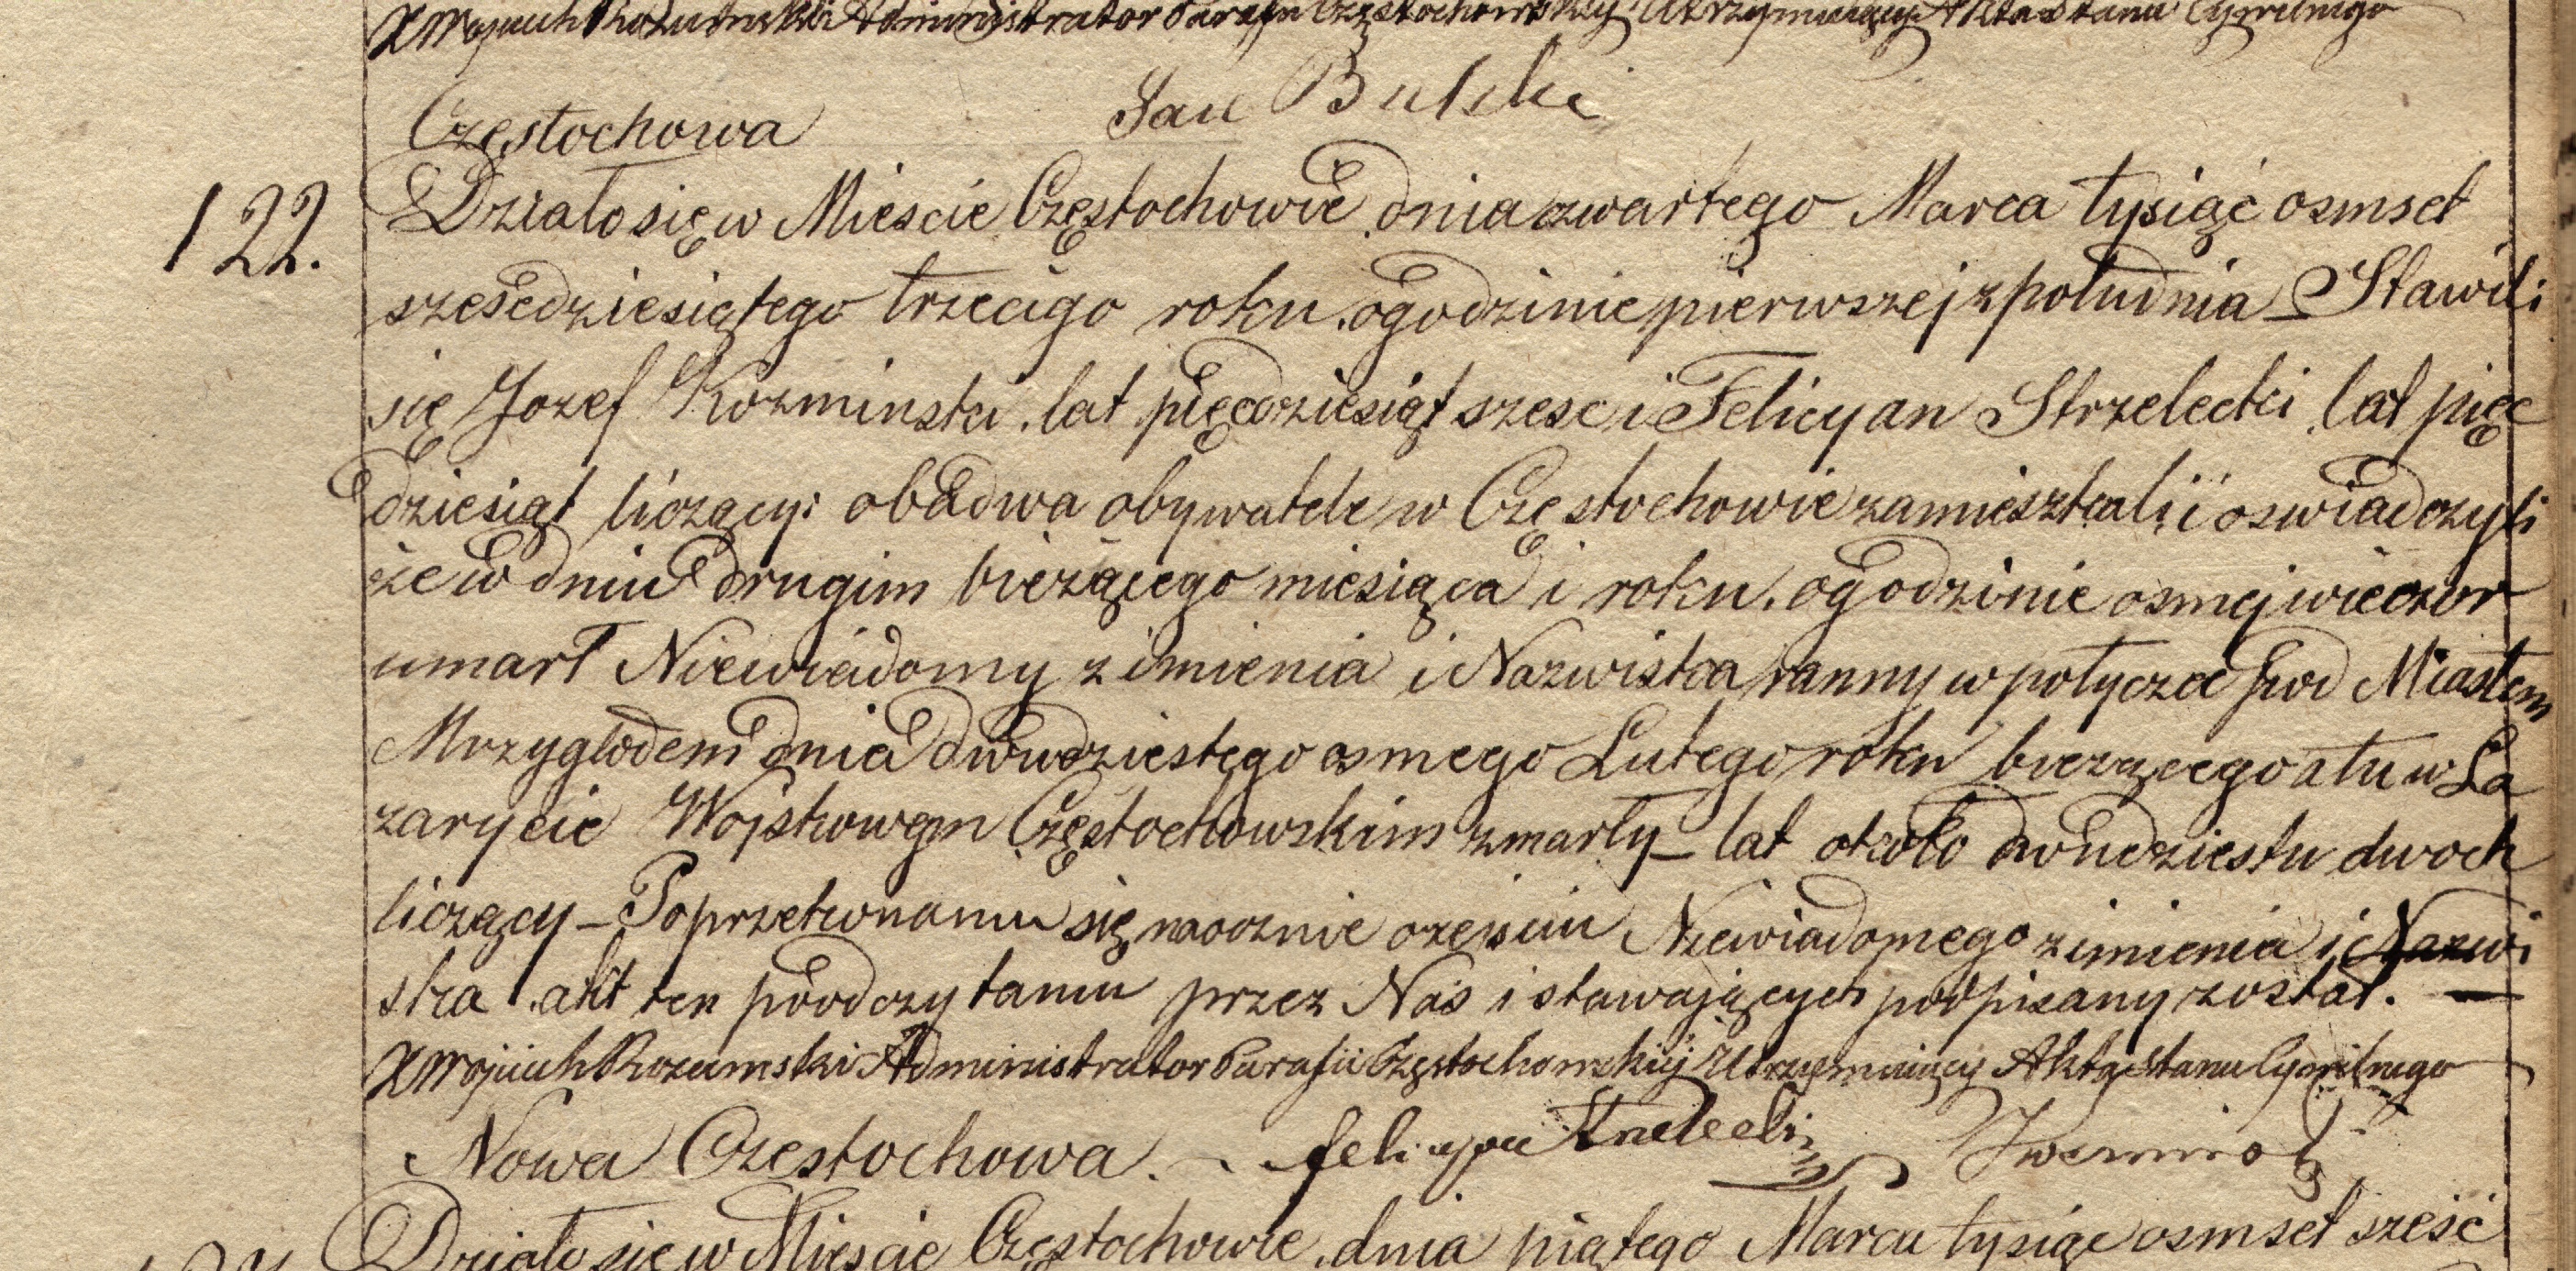 X Wojciech Rozumski Administrator Parafii Częstochowskiej Utrzymuiący Akta Stanu Cywilnego
Jan Bulski
Częstochowa
122.
Działo się w Miescie Częstochowie dnia czwartego Marca tysiąć osmset
sześcdziesiątego trzeciego roku. ogodzinie pierwszej z południa _ Stawili
się Jozef Kozminski. lat pięcdziesiąt szesc i Felicyan Strzelecki lat pięc
dziesiąt liczący: obadwa obywatele w Częstochowie zamieszkali, i oswiadczyli
że w dniu drugim bieżącego miesiąca i roku. ogodzinie osmej wieczor
umarł Niewiadomy z imienia i Nazwiska ranny w potyczce pod Miastem
Mrzygłodem dnia dwudziestego osmego Lutego roku bieżącego a tu w La
zarycie Wojskowem Częstochowskim zmarły _ lat około dwudziestu dwoch
liczący _ Po przekonaniu się naocznie o zejsciu Niewiadomego z imienia i Nazwi
ska. akt ten po odczytaniu przez Nas i stawających podpisany został. —
X Wojciech Rozumski Administrator Parafii Częstochowskiej Utrzymuiący Akta Stanu Cywilnego
Nowa Częstochowa. Felicyan Strzelecki
Działo się w Miescie Częstochowie. dnia piątego Marca tysiąc osmset sześć